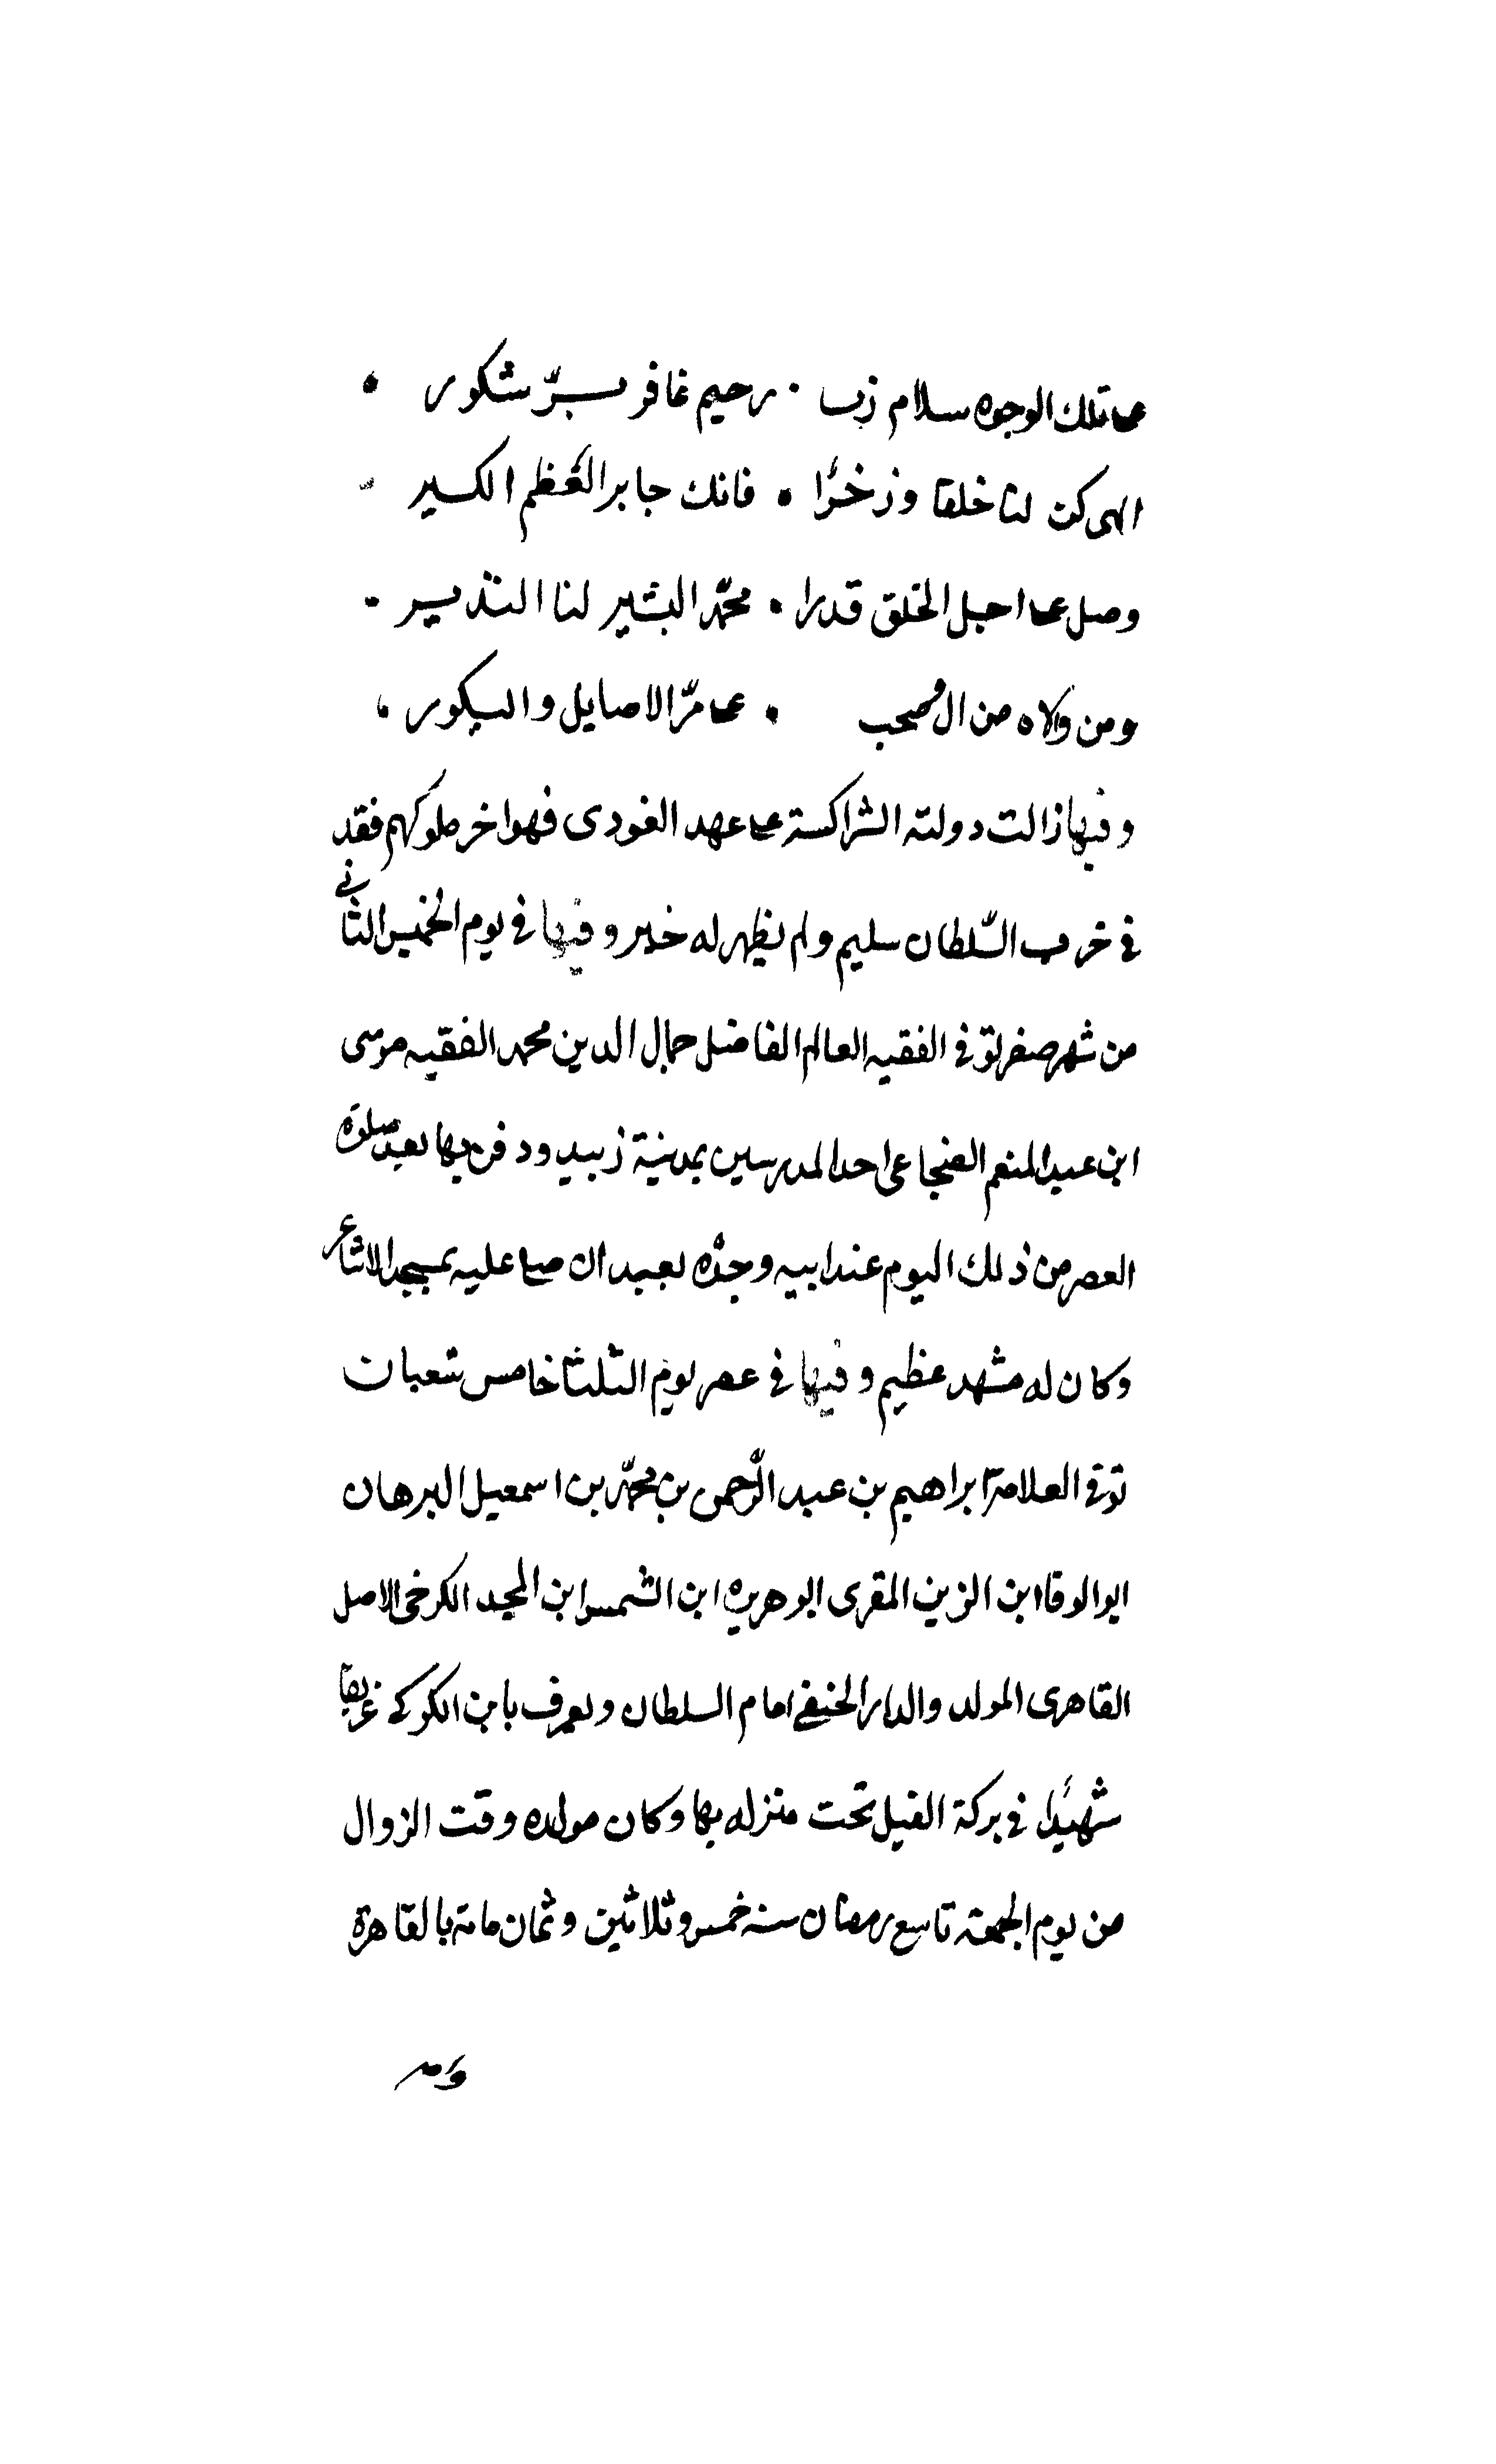 على تلك الوجوه سلام رب . رحيم غافر برّ شكور .
الهى كن لنا خلفا وذخرًا . فانك جابر العَظم الكسير
وصل على اجل الخلق قدرا . محمّد البشير لنا النذير .
ومن والاه من ال وصحب . على مرّ الاصايل والبكور .
وفيها زالت دولة الشراكسة على عهد الغورى فهو اخر ملوكهم فقد
في حرب السّلطان سليم ولم يظهر له خبر وفيها في يوم الخميس الثاني
من شهر صفر توفي الفقيه العالم الفاضل جمال الدين محمد الفقيه موسى
ابن عبد المنعم الضجاعى احد المدرسين بمدينة زبيد ودفن بها بعد صلوة
العصر من ذلك اليوم عند ابيه وجدّه بعد ان صلى عليه بمسجد الاشاعر
وكان له مشهد عظيم وفيها في عصر يوم الثلثا خامس شعبان
توفي العلامة ابراهيم بن عبد الرّحمن بن محمّد بن اسمعيل البرهان
ابو الوفا ابن الزين المقرى ابو هريره ابن الشمس ابن المجد الكركي الاصل
القاهرى المولد والدار الحنفي امام السلطان ويعرف بابن الكركي غريقا
شهيدًا في بركة الفيل تحت منزله بها وكان مولده وقت الزوال
من يوم الجمعة تاسع رمضان سنه خمس وثلاثين وثمان مامة بالقاهرة